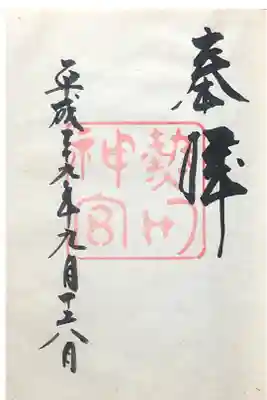 奉拝
熱田神宮
平成二十九年九月十八日